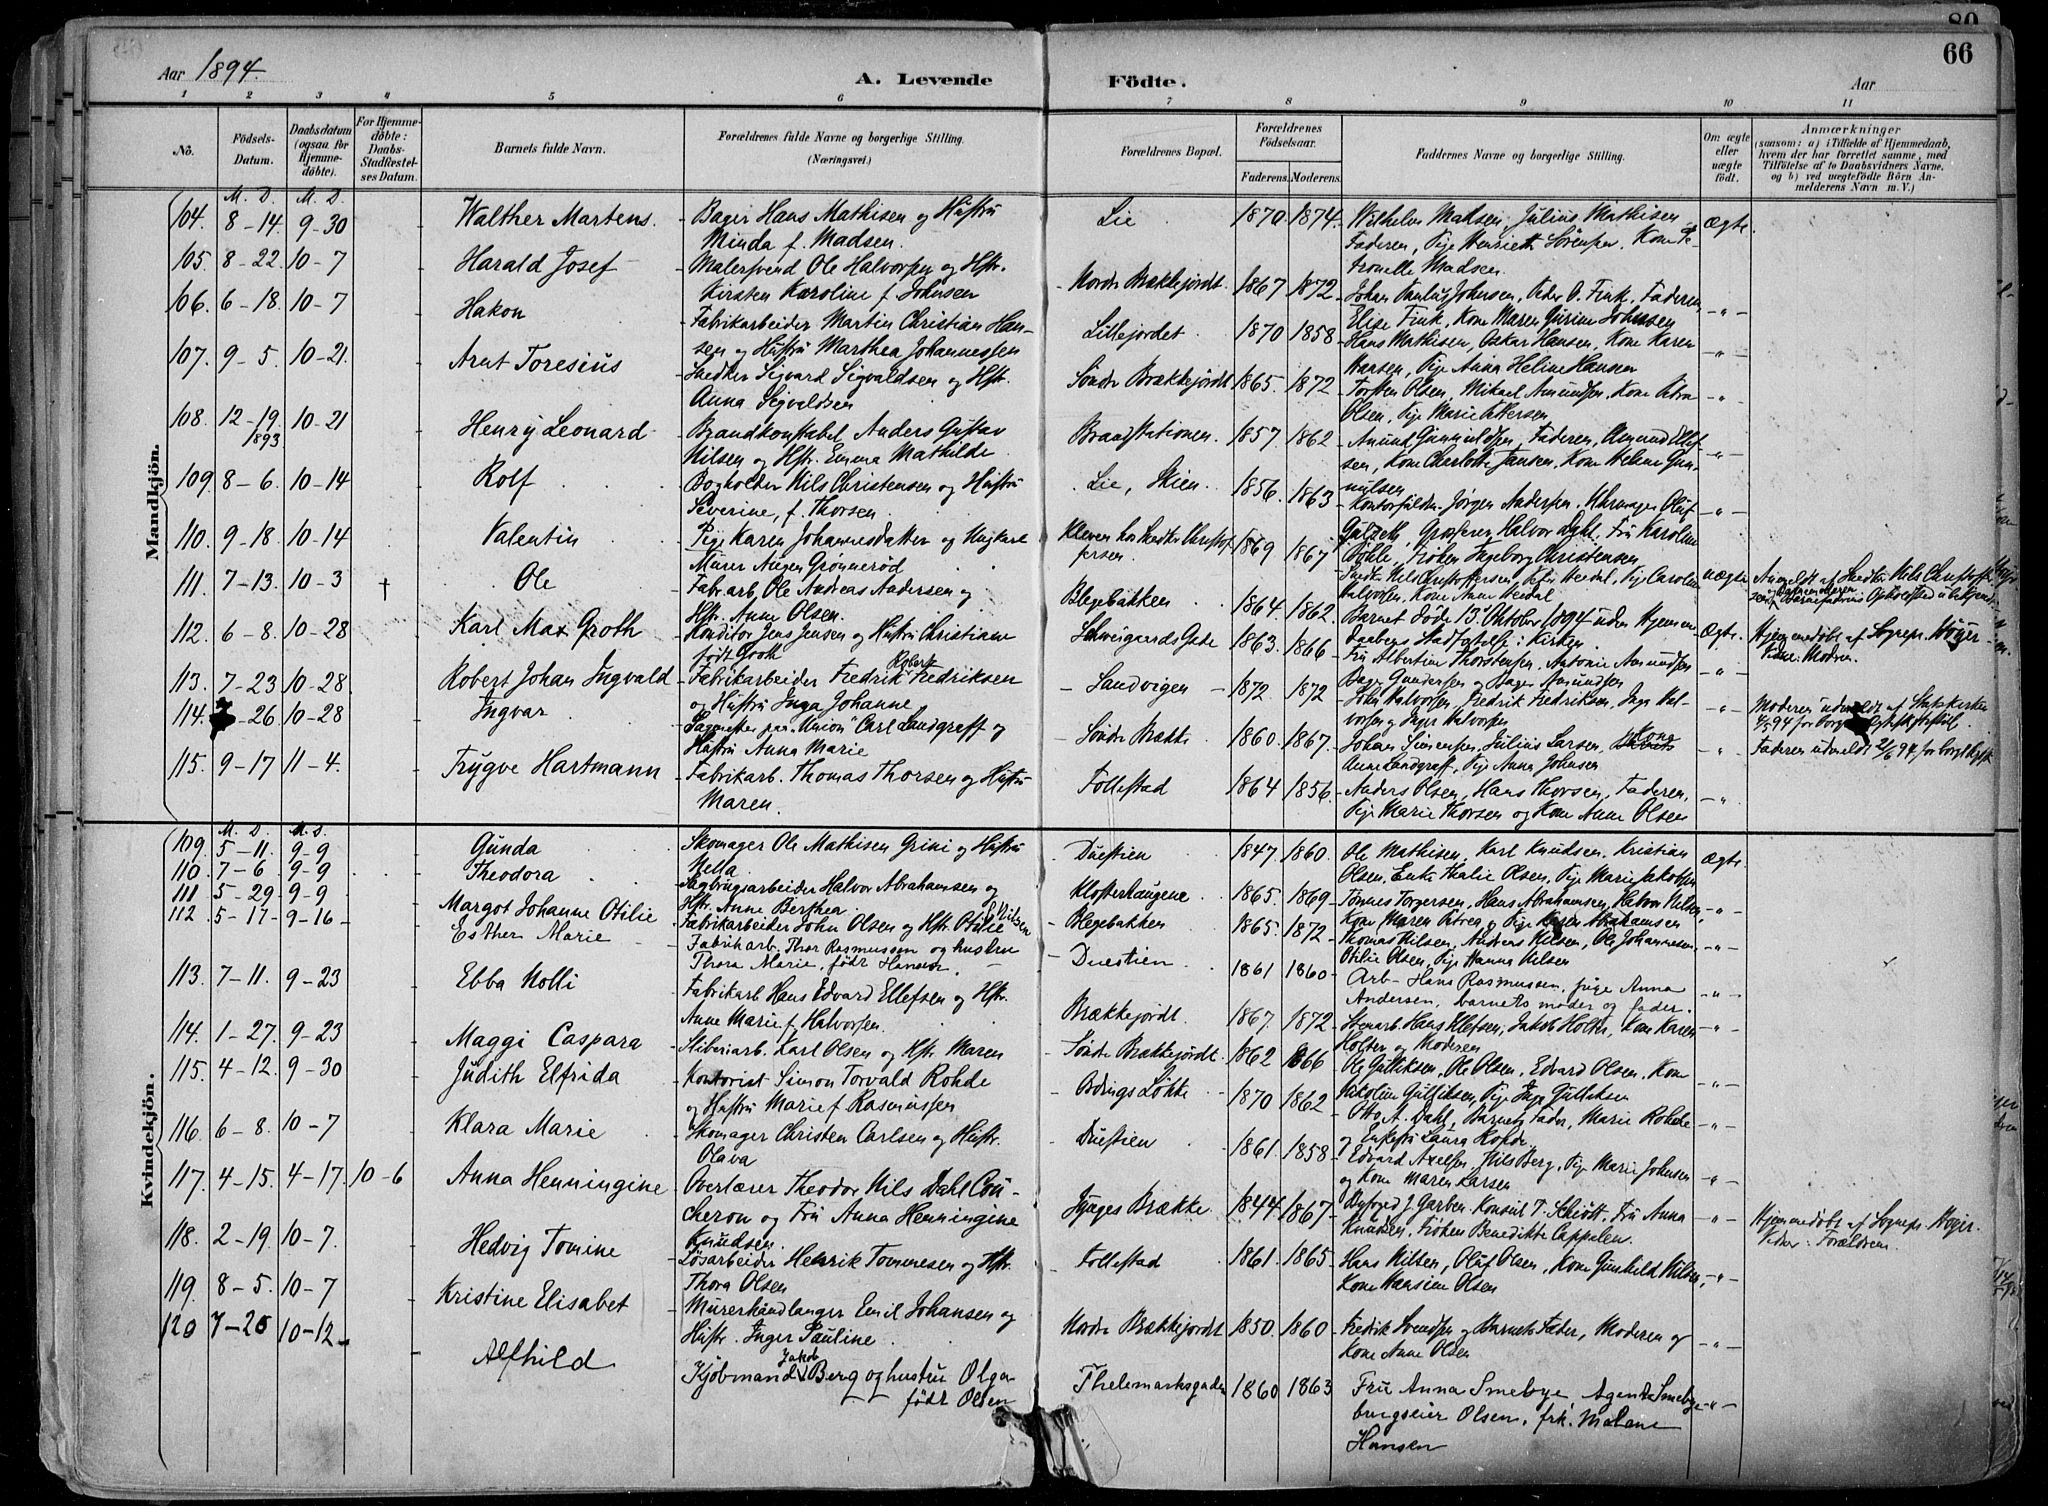 80
66
Aar 1894.
A. Levende Födte.
Aar
1 2 3 4 5 6 7 8 9 10 11
No.
Födsels-Datum.
Daabsdatum (ogsaa for Hjemme-döbte).
For Hjemme-döbte: Daabs-Stadfæstel-ses Datum.
Barnets fulde Navn.
Forældrenes fulde Navne og borgerlige Stilling. (Næringsvei.)
Forældrenes Bopæl.
Forældrenes Födselsaar.
Faderens. Moderens.
Faddernes Navne og borgerlige Stilling.
Om ægte eller uægte födt.
Anmærkninger
(saasom: a) i Tilfælde af Hjemmedaab, hvem der har forrettet samme, med Tilföielse af to Daabsvidners Navne, og b) ved uægtefödte Börn An-melderens Navn m. V.)
Mandkjön.
M. D. M. D.
104. 8-14. 9-30 Walther Martens. Bager Hans Mathisen og Hustru Minda f. Madsen. Lie 1870. 1874. Wilhelm Madsen, Julius Mathisen Faderen, Pige Henriette Sörensen, Kone Pe-tronelle Madsen. ægte
105. 8-22. 10-7 Harald Josef Malersvend Ole Halvorsen og Hstr. Kirsten Karoline f. Johnsen Nordr. Brækkejordt 1867 1872 Johan Paulus Johnsen, Peder O. Fink, Faderen, Elise Fink, Kone Maren Gurine Johnsen -"-
106. 6-18. 10-7 Hakon Fabrikarbeider Martin Christian Han-sen og Hustru Marthea Johannessen Lillejordet 1870 1858 Hans Mathisen, Oskar Hansen, Kone Karen Hansen, Pige Anna Heline Hansen -"-
107. 9-5. 10-21. Arnt Toresius Snedker Sigvard Sigvaldsen og Hstr. Anna Sigvaldsen Söndr Brækkejordt 1865. 1872 Torsten Olsen, Mikael Amundsen, Kone Petra Olsen, Pige Marie Pettersen -"-
108. 12-19. 1893 10-21 Henry Leonard Brandkonstabel Anders Gustav Nilsen og Hstr. Emma Mathilde Brandstationen. 1857 1862 Amund Gunnuldsen, Faderen, Amund Ellef-sen, Kone Charlotte Jansen, Kone Helene Gun-nulsen -"-
109. 8-6. 10-14 Rolf Bogholder Nils Christensen og Hustru Severine, f. Thorsen Lie, Skien. 1856. 1863 Jörgen Andersen, Uhrmager Oluf Grosserer Halvor Dahl, Fru Karoline Fröken Ingeborg Christensen -"-
110. 9-18. 10-14 Valentin Pige Karen Johannesdatter og Ungkarl Murer Grönneröd 1869 1867 Snedk. Nils Christoffersen, Pige Caroline Halvorsen, Kone Anne uægte Anmeldt af Snedker Nils Christoffer-sen
111. 7-13. 10-3 † Ole Fabrarb, Ole Andreas Andersen og Hstr. Anne Olsen. Blegebakken 1864 1862. Barnet döde 13de Oktober 1894 uden Hjemme Daabens Stadfæstelse i Kirken. Ægte. Hjemmedöbt af Sognepr. Höyer Vidne: Modren.
112. 6-8. 10-28 Karl Max Groth Konditor Jens Jensen og Hustru Christiane född Groth Schweigaards Gade 1863. 1866 Fru Albertine Thorstensen, Antonie Amundsen Bager Gundersen og Bager Amundsen -"-
113. 7-23 10-28. Robert Johan Ingvald Fabrikarbeider Fredrik Robert Fredriksen og Hustru Inga Johanne Sandvigen 1872. 1872 John Halvorsen, Fredrik Fredriksen, Inga Hal-vorsen og Inger Halvorsen -"- Moderen udmeldt af Statskirken
114. -26. 10-28 Ingvar Sagmester paa "Union" Carl Landgraff og Hustru Anna Marie Söndr Brække 1860. 1867. Johan Simensen, Julius Larsen, Kone Anne Landgraff, Pige Anna Johnsen -"- Faderen udmeldt 2/6 94 for borgl.
115. 9-17 11-4. Trygve Hartmann Fabrikarb. Thomas Thorsen og Hustru Maren. Follestad 1864 1856. Anders Olsen, Hans Thorsen, Faderen, Pige Marie Thorsen og Kone Anne Olsen -"-
Kvindekjön.
M. D. M. D.
109. 5-11. 9-9 Gunda Skomager Ole Mathisen Grini og Hustru Nella. Duestien 1847. 1860. Ole Mathisen, Karl Knudsen, Kristian Olsen, Enke Thalie Olsen, Pige Marie Jakobsen ægte
110. 7-6 9-9 Theodora Sagbrugsarbeider Halvor Abrahamsen og Hstr. Anne Berthea Klosterhaugene 1865. 1869 Tönnes Torgersen, Hans Abrahamsen, Halvor Nilsen, Kone Maren Petrea og Pige Karen Abrahamsen -"-
111 5-29. 9-9 Margot Johanne Otilie Fabrikarbeider John Olsen og Hstr. Otilie f. Nilsen Blegebakken 1865. 1872 Thomas Nilsen, Anders Nilsen, Ole Johannesen Otilie Olsen, Pige Hanna Nilsen -"-
112. 5-17-9-16- Esther Marie Fabrikarb. Thor Rasmussen og hustru Thora Marie, född Hansen. Duestien 1861 1860 Arb- Hans Rasmussen, pige Anna Andersen, barnets moder og fader. -"-
113. 7-11. 9-23 Ebba Nolli Fabrikarb Hans Edvard Ellefsen og Hstr. Anne Marie f. Halvorsen. Brækkejordt. 1867. 1872 Hans Ellefsen, Jakob Holter, Kone Karen Holter og Moderen -"-
114. 1-27. 9-23 Maggi Caspara Sliberiarb. Karl Olsen og Hstr. Maren Söndr Brækkejordt. 1862 1866 Ole Gulliksen, Ole Olsen, Edvard Olsen, Kone Gulliksen, Pige Inga Gulliksen -"-
115. 4-12. 9-30 Judith Elfrida Kontorist Simon Torvald Rohde og Hustru Marie f Rasmussen Bdrings Lökke 1870 1862 Otto A. Dahl, Barnets Fader, Marie Rohde og Enkefru Laura Rohde. -"-
116. 6-8. 10-7 Klara Marie Skomager Christen Carlsen og Hustr. Olava Duestien 1861. 1858 Edvard Axelsen, Nils Berg, Pige Marie Johnsen og Kone Maren Larsen -"-
117. 4-15. 4-17. 10-6 Anna Henningine Overlærer Theodor Nils Dahl Cou-cheron og Fru Anna Henningine Knudsen. Brække 1844 1867 J. Garben, Konsul T. Schiött, Fru Anna Knudsen, Fröken Benedikte Cappelen. -"- Hjemmedöbt af Sognepr. Höyer. Vidner: Forældrene.
118. 2-19. 10-7. Hedvig Tomine Lösarbeider Henrik Tommesen og Hstr. Thora Olsen Follestad 1861. 1865 Hans Nilsen, Oluf Olsen, Kone Gunhild Nilsen, Kone Olsen -"-
119. 8-5. 10-7 Kristine Elisabet Murerhandlanger Emil Johansen og Hustr. Inger Pauline. Nordr Brækkejordt 1850. 1860 Fredrik Svendsen og Barnets Fader, Moderen og Kone Anne Olsen -"-
120 7-26 10-12- Alfhild Kjöbmand Jakob Berg og hustru Olga född Olsen Thelemarksgaden 1860 1863 Fru Anna Smebye, Agent Smebye brugseier Olsen, frk. Malene Hansen -"-